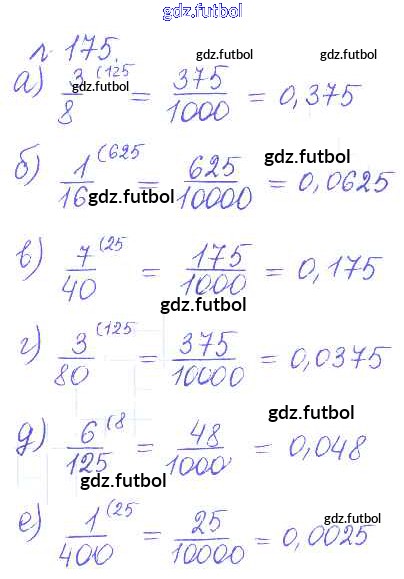 gdz.futbol
л. 175.
gdz.futbol gdz.futbol
а) 3/8 (125 = 375/1000 = 0,375
gdz.futbol
б) 1/16 (625 = 625/10000 = 0,0625
gdz.futbol
в) 7/40 (25 = 175/1000 = 0,175
gdz.futbol
г) 3/80 (125 = 375/10000 = 0,0375
gdz.futbol
д) 6/125 (8 = 48/1000 = 0,048
gdz.futbol
gdz.futbol
е) 1/400 (25 = 25/10000 = 0,0025
gdz.futbol